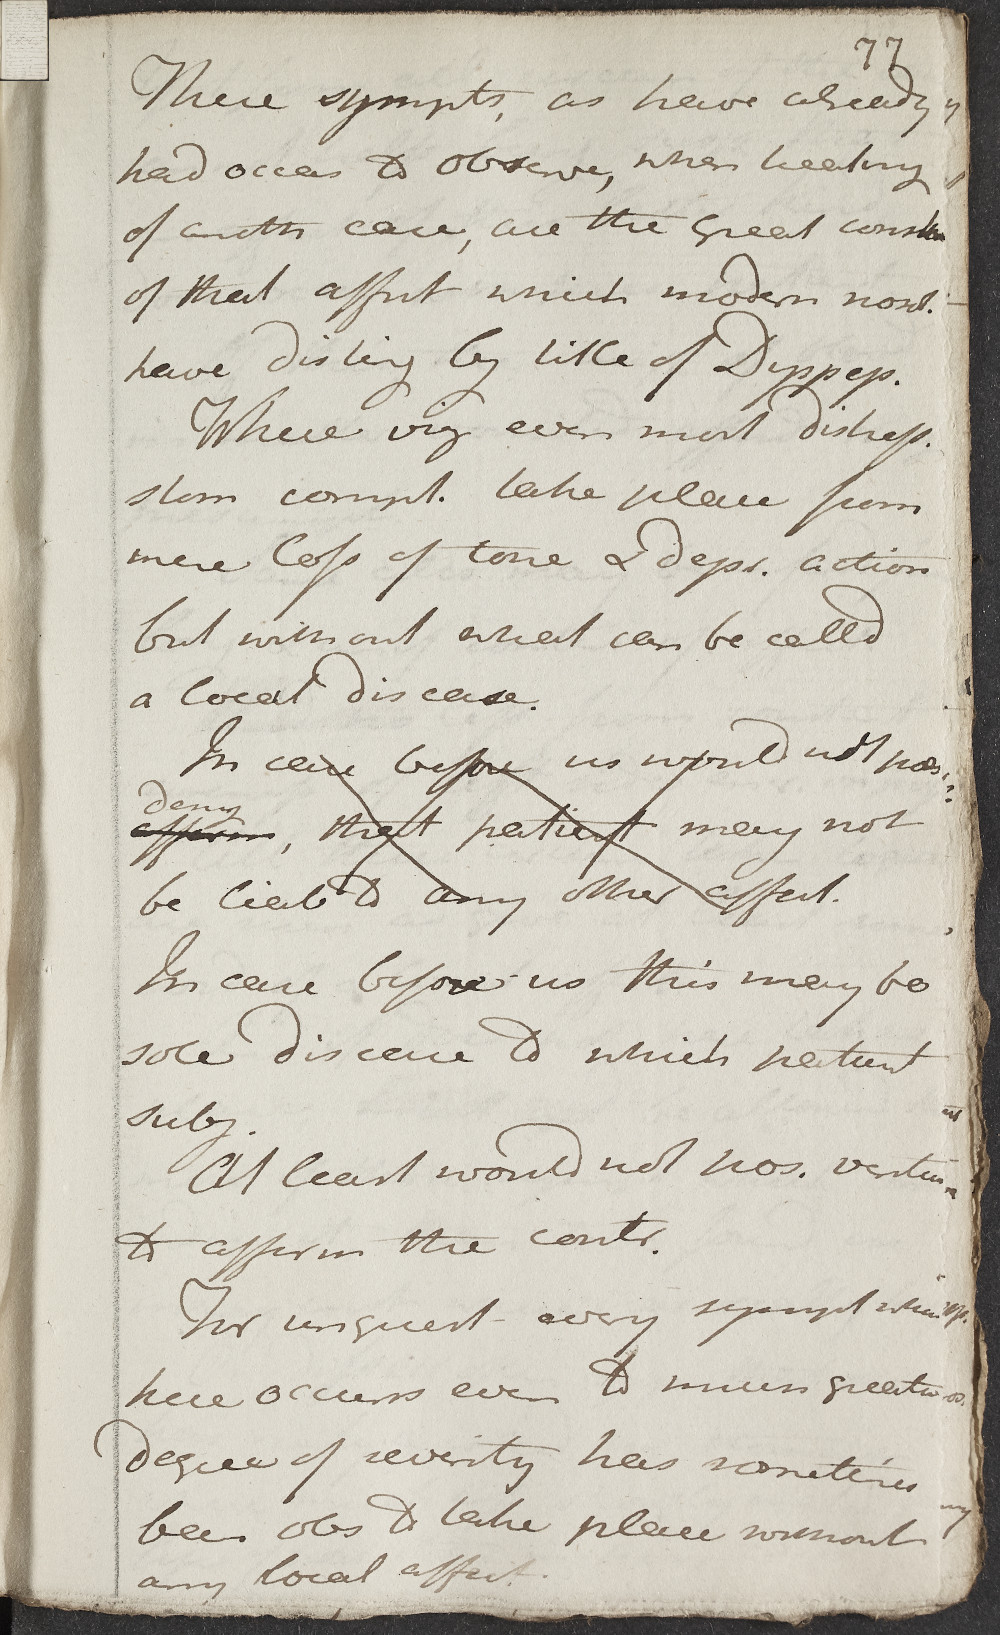 77
These sympts, as have already
had occas to observe, when treating
of anoth case, are the great const
of that affect which modern nosol.
have disting by title of Dyspep.
Where vig even most distress.
stom compl. take place from
mere loss of tone & depr. action
but without what can be called
a local disease.
In case before us would not pos
deny
affirm, that patient may not
be liab to any other affect.
In case before us this may be
sole disease to which patient
subj.
At least would not pos. venture
to affirm the contr.
For unquest every sympt which
here occurs even to much greater
degree of severity has sometimes
been obs to take place without
any local affect.